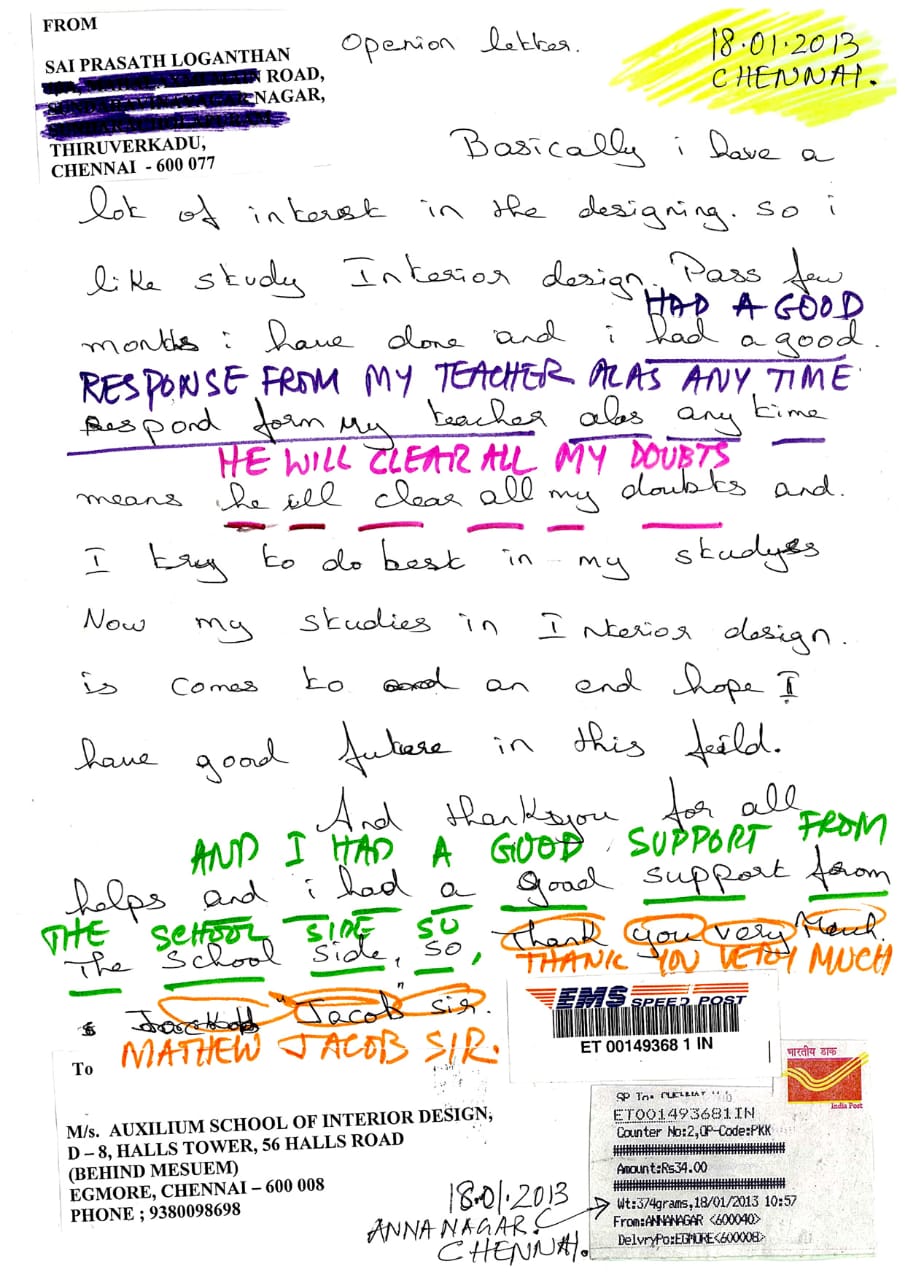 FROM
SAI PRASATH LOGANTHAN
ROAD,
NAGAR,
THIRUVERKADU,
CHENNAI - 600 077
Openion letter.
18.01.2013
CHENNAI.
Basically i have a
lot of interest in the designing. so i
like study Interior design. Pass few
HAD A GOOD
months i have done and i had a good.
RESPONSE FROM MY TEACHER ALAS ANY TIME
Respond form my teacher alas any time
HE WILL CLEAR ALL MY DOUBTS
means he ill clear all my doubts and.
I try to do best in my studyes
Now my studies in Interior design.
is comes to an end hope I
have good future in this feild.
And thankyou for all
AND I HAD A GOOD SUPPORT FROM
helps and i had a good support form
THE SCHOOL SIDE SO
The school side, so, Thank you very Much
THANK YOU VERY MUCH
"Jacob" sir.
MATHEW JACOB SIR.
EMS SPEED POST
ET 00149368 1 IN
भारतीय डाक
India Post
To
M/s. AUXILIUM SCHOOL OF INTERIOR DESIGN,
D – 8, HALLS TOWER, 56 HALLS ROAD
(BEHIND MESUEM)
EGMORE, CHENNAI – 600 008
PHONE ; 9380098698
18.01.2013
ANNA NAGAR.
CHENNAI.
ET001493681IN
Counter No:2,OP-Code:PKK
Amount:Rs34.00
Wt:374grams,18/01/2013 10:57
From:ANNANAGAR <600040>
DelvryPo:EGMORE<600008>